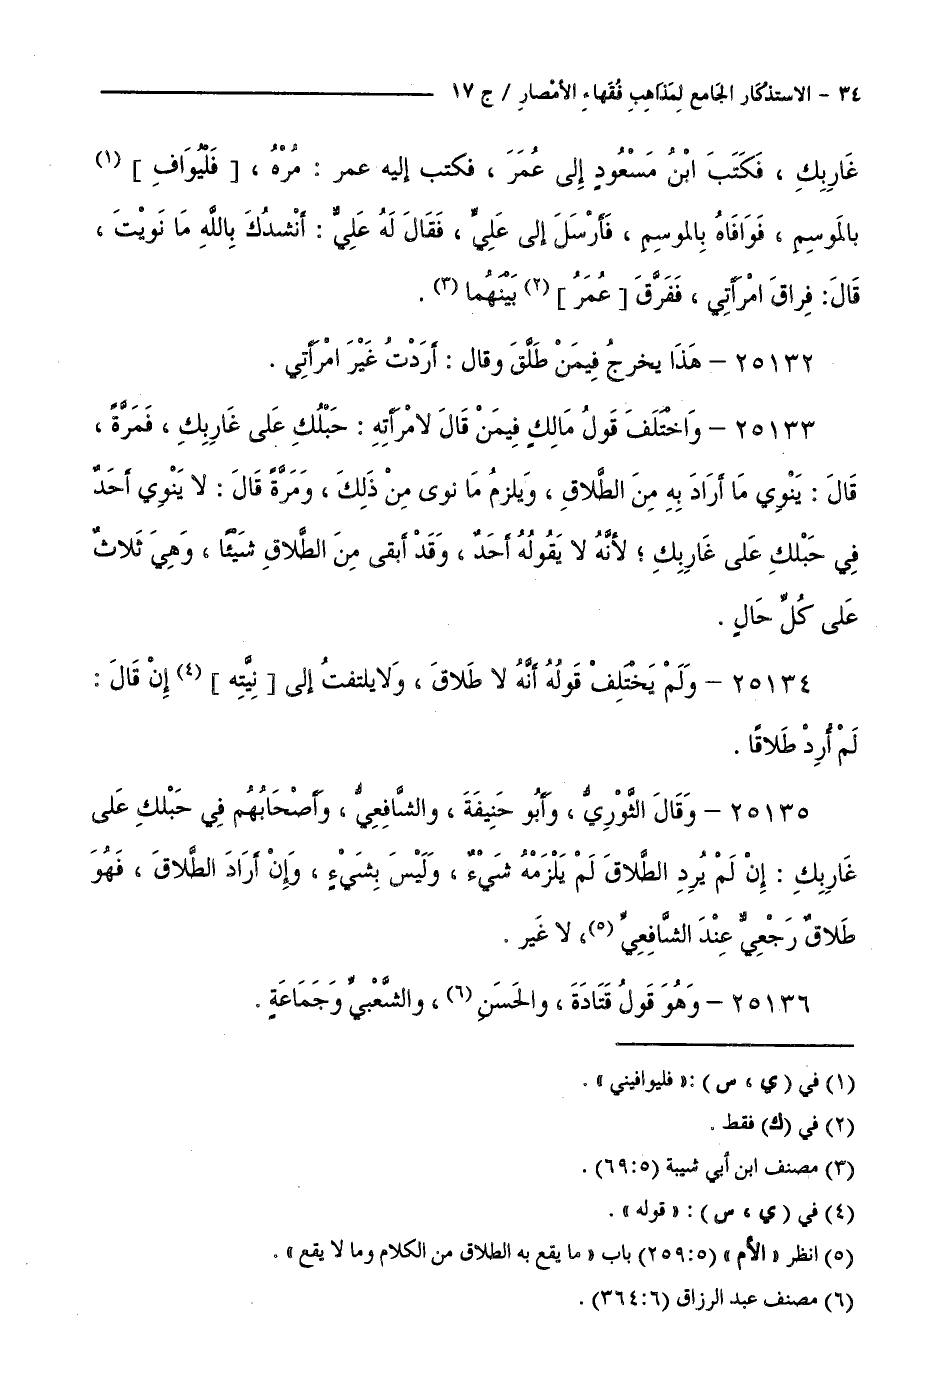 ٣٤ - الاستذكار الجامع لِمَذاهِبِ فُقَهاءِ الأمْصارِ / ج ١٧
غَارِبِكِ ، فَكَتَبَ ابْنُ مَسْعُودٍ إِلى عُمَرَ ، فكتب إليه عمر : مُرْهُ ، [ فَلْيُوَافِ ] (١)
بالمَوسِمِ ، فَوَافَاهُ بِالموسِمِ ، فَأَرْسَلَ إلى عَلِيٍّ ، فَقَالَ لَهُ عَلِيٌّ : أنْشدُكَ بِاللَّهِ مَا نَويْتَ ،
قَالَ: فِراقَ امْرَأَتِي ، فَفَرَّقَ [ عُمَرُ ] (٢) بَيْنَهُما (٣) .
٢٥١٣٢ - هَذَا يخرجُ فِيمَنْ طَلَّقَ وقال : أَرَدْتُ غَيْرَ امْرَأَتِي .
٢٥١٣٣ - وَاخْتَلَفَ قَولُ مَالِكٍ فِيمَنْ قَالَ لامْرأَتِهِ : حَبْلُكِ عَلى غَارِبِكِ ، فَمَرَّةً ،
قَالَ : يَنْوِي مَا أَرَادَ بِهِ مِنَ الطَّلاقِ ، وَيلزمُ مَا نوى مِنْ ذَلِكَ ، وَمَرَّةً قَالَ : لا يَنْوِي أَحَدٌ
فِي حَبْلكِ عَلى غَارِبِكِ ؛ لأنَّهُ لا يَقُولُهُ أَحَدٌ ، وَقَدْ أبقى مِنَ الطَّلاقِ شَيَئًا ، وَهِيَ ثَلاثٌ
عَلى كُلِّ حَالٍ .
٢٥١٣٤ - وَلَمْ يَخْتَلِفْ قَولُهُ أنَّهُ لا طَلاقَ ، وَلايلتفتُ إلى [ نِيَّتِه ] (٤) إِنْ قَالَ :
لَمْ أُرِدْ طَلاقًا .
٢٥١٣٥ - وَقَالَ الثَّوْرِيُّ ، وَأَبُو حَنِيفَةَ ، والشَّافِعِيُّ ، وَأَصْحَابُهُم فِي حَبْلكِ عَلى
غَاربِكِ : إِنْ لَمْ يُرِدِ الطَّلاقَ لَمْ يَلْزَمْهُ شَيْءٌ ، وَلَيْسَ بِشَيْءٍ ، وَإِنْ أَرَادَ الطَّلاقَ ، فَهُوَ
طَلاقٌ رَجْعِيٌّ عِنْدَ الشَّافِعِيِّ (٥)، لا غَير .
٢٥١٣٦ - وَهُوَ قَولُ قَتَادَةَ ، والحَسَنِ (٦) ، والشَّعْبِيِّ وَجَمَاعَةٍ .
(١) في ( ي ، س ) :« فليوافيني » .
(٢) في (ك) فقط .
(٣) مصنف ابن أبي شيبة (٥:٦٩) .
(٤) في ( ي ، س ) : « قوله » .
(٥) انظر « الأم » (٥:٢٥٩) باب « ما يقع به الطلاق من الكلام وما لا يقع » .
(٦) مصنف عبد الرزاق (٦:٣٦٤) .